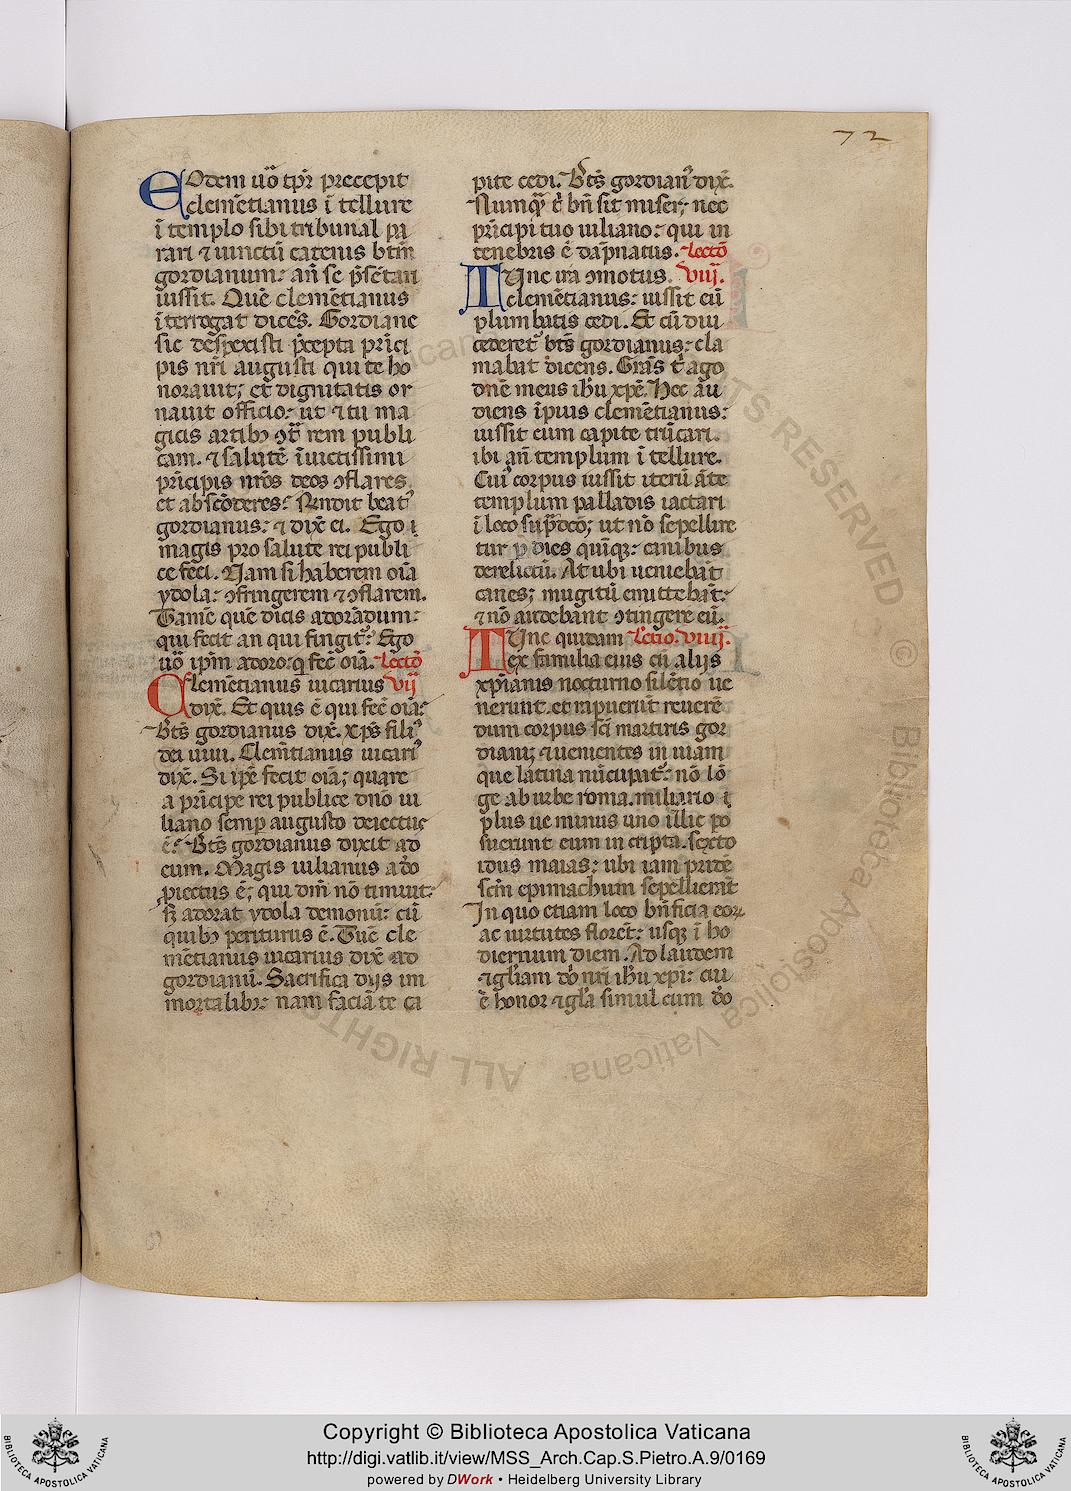 72
EOdem ũo tp̃r precepit
clem̃etianus ĩ tellure
ĩ templo sibi tribunal pa
rari ⁊ uinctũ catenis btm̃
gordianum: añ se p̃sẽtari
iussit. Quẽ clemẽtianus
ĩterrogat dicẽs. Gordiane
sic despexisti p̃cepta prĩci
pis nr̃i augusti qui te ho
norauit; et dignitatis or
nauit officio: ut ⁊ tu ma
gicis artibꝫ ↄt̃ rem publi
cam. ⁊ salutẽ ĩuictissimi
prĩcipis nr̃os deos ↄflares
et abscõderes? Rñdit beatꝰ
gordianus: ⁊ dix̃ ei. Ego ĩ
magis pro salute rei publi
ce feci. Nam si haberem oĩa
ydola: ↄfringerem ⁊ ↄflarem.
Tamẽ quẽ dicis adorãdum:
qui fecit an qui fingit᷑? Ego
ũo ip̃m adoro: q̃ fec̃ oĩa. Lectõ
Clemẽtianus uicarius VII
dix̃. Et quis ẽ qui fec̃ oĩa?
Bt̃s gordianus dix̃. xp̃s filiꝰ
dei uiui. Clemẽtianus uicariꝰ
dix̃. Si ip̃e fecit oĩa; quare
a prĩcipe rei publice dño iu
liano semp̲ augusto deiectus
ẽ? Bt̃s gordianus dixit ad
eum. Magis iulianus a dõ
piectus ẽ; qui dm̃ nõ timuit:
sꝫ adorat ydola demonũ: cũ
quibꝫ periturus ẽ. Tũc cle
mẽtianus uicarius dix̃ ad
gordianũ. Sacrifica diis im
mortalibꝫ: nam faciã te ca
pite cedi. Bt̃s gordianꝰ dix̃.
Numq̃ t̃ bñ sit miser; nec
prĩcipi tuo iuliano: qui in
tenebris ẽ dãpnatus. Lectõ
TUnc ira ↄmotus. VIII.
clemẽtianus: iussit eũ
plumbatis cedi. Et cũ diu
cederet᷑ bt̃s gordianus: cla
mabat dicens. Grãs t̃ ago
dñe meus ihũ xp̃e. Hec au
diens ĩpius clemẽtianus:
iussit eum capite trũcari.
ibi añ templum ĩ tellure.
Cuiꝰ corpus iussit iterũ ãte
templum palladis iactari
ĩ loco sup̃dc̃o; ut nõ sepellire
tur p̲ dies quĩqꝫ: canibus
derelictũ. At ubi ueniebãt
canes; mugitũ emittebãt:
⁊ nõ audebãnt ↄtingere eũ.
TUnc quidam Lectio. VIIII.
ex familia eius cũ aliis
xp̃ianis nocturno silẽtio ue
nerunt. et rapuerũt reuerẽ
dum corpus sc̃i martiris gor
diani; ⁊ uenientes in uiam
que latina nũcupat᷑: nõ lõ
ge ab urbe roma. miliario ĩ
plus ue minus uno illic po
suerunt eum in cripta. sexto
idus maias: ubi iam pridẽ
sc̃m epimachum sepellierũt
In quo etiam loco bñficia eoꝝ
ac uirtutes florẽt: usqꝫ ĩ ho
diernum diem. Ad laudem
⁊ gl̃iam dñi nr̃i ihũ xp̃i: cui
ẽ honor ⁊ gl̃a simul cum dõ
Copyright © Biblioteca Apostolica Vaticana
http://digi.vatlib.it/view/MSS_Arch.Cap.S.Pietro.A.9/0169
powered by DWork • Heidelberg University Library